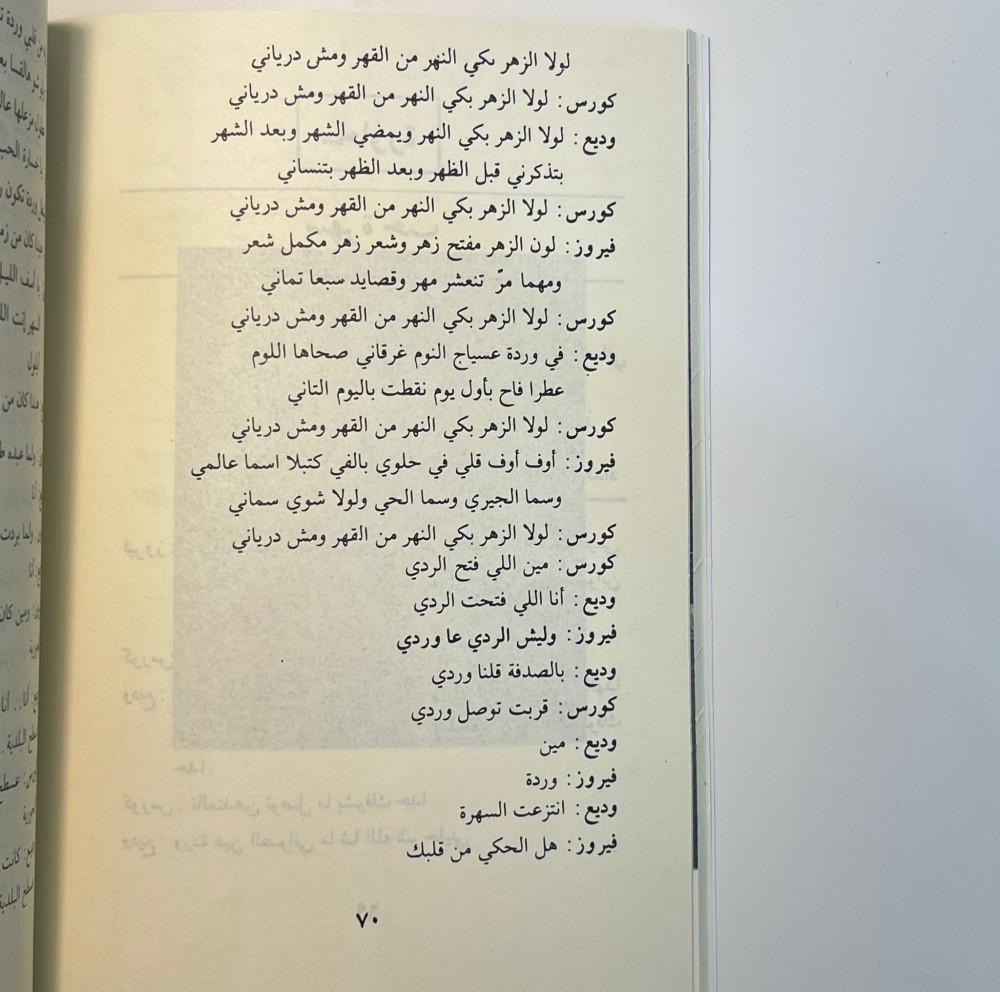 لولا الزهر بكي النهر من القهر ومش درياني
كورس: لولا الزهر بكي النهر من القهر ومش درياني
وديع: لولا الزهر بكي النهر ويمضي الشهر وبعد الشهر
بتذكرني قبل الظهر وبعد الظهر بتنساني
كورس: لولا الزهر بكي النهر من القهر ومش درياني
فيروز: لون الزهر مفتح زهر وشعر زهر مكمل شعر
ومهما مرّ تنعشر مهر وقصايد سبعا تماني
كورس: لولا الزهر بكي النهر من القهر ومش درياني
وديع: في وردة عسياج النوم غرقاني صحاها اللوم
عطرا فاح بأول يوم نقطت باليوم التاني
كورس: لولا الزهر بكي النهر من القهر ومش درياني
فيروز: أوف أوف قلي في حلوي بالفي كتبلا اسما عالمي
وسما الجيري وسما الحي ولولا شوي سماني
كورس: لولا الزهر بكي النهر من القهر ومش درياني
كورس: مين اللي فتح الردي
وديع: أنا اللي فتحت الردي
فيروز: وليش الردي عا وردي
وديع: بالصدفة قلنا وردي
كورس: قربت توصل وردي
وديع: مين
فيروز: وردة
وديع: انتزعت السهرة
فيروز: هل الحكي من قلبك
٧٠